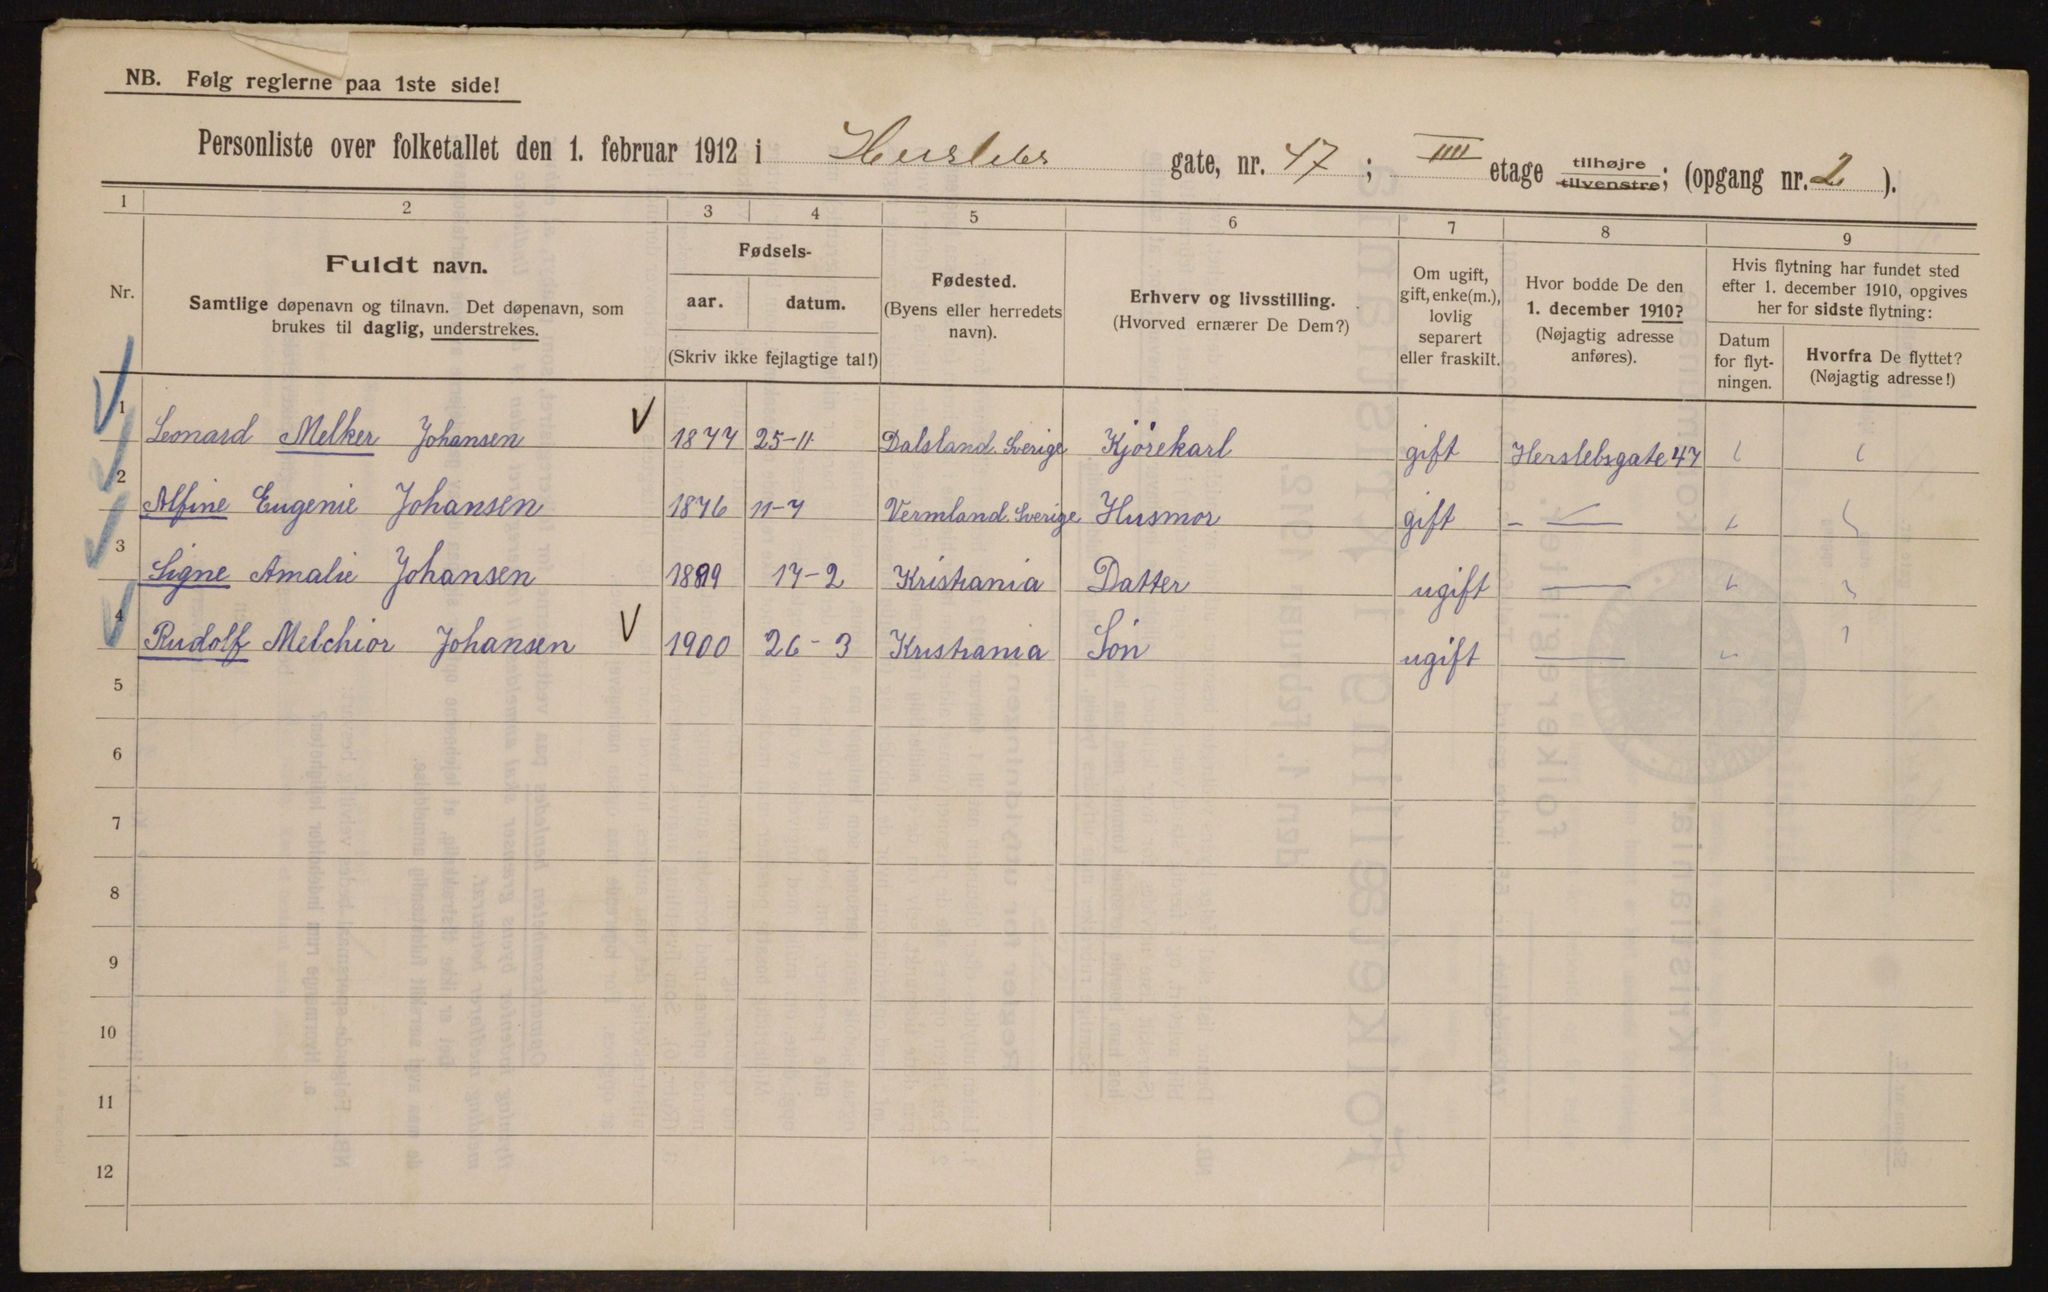 NB. Følg reglerne paa 1ste side!
Personliste over folketallet den 1. februar 1912 i Herslebs gate, nr. 47; IIII etage tilhøjre tilvenstre; (opgang nr. 2).
1 2 3 4 5 6 7 8 9
Nr.
Fuldt navn.
Samtlige døpenavn og tilnavn. Det døpenavn, som
brukes til daglig, understrekes.
Fødsels-
aar. datum.
(Skriv ikke fejlagtige tal!)
Fødested.
(Byens eller herredets
navn).
Erhverv og livsstilling.
(Hvorved ernærer De Dem?)
Om ugift,
gift, enke(m.),
lovlig
separert
eller fraskilt.
Hvor bodde De den
1. december 1910?
(Nøjagtig adresse
anføres).
Hvis flytning har fundet sted
efter 1. december 1910, opgives
her for sidste flytning:
Datum
for flyt-
ningen.
Hvorfra De flyttet?
(Nøjagtig adresse!)
1 Leonard Melker Johansen 1877 25-11 Dalsland. Sverige Kjørekarl gift Herslebsgate 47
2 Alfine Eugenie Johansen 1876 11-7 Vermland. Sverige Husmor gift - —
3 Signe Amalie Johansen 1899 17-2 Kristiania Datter ugift —
4 Rudolf Melchior Johansen 1900 26-3 Kristiania Søn ugift —
5
6
7
8
9
10
11
12